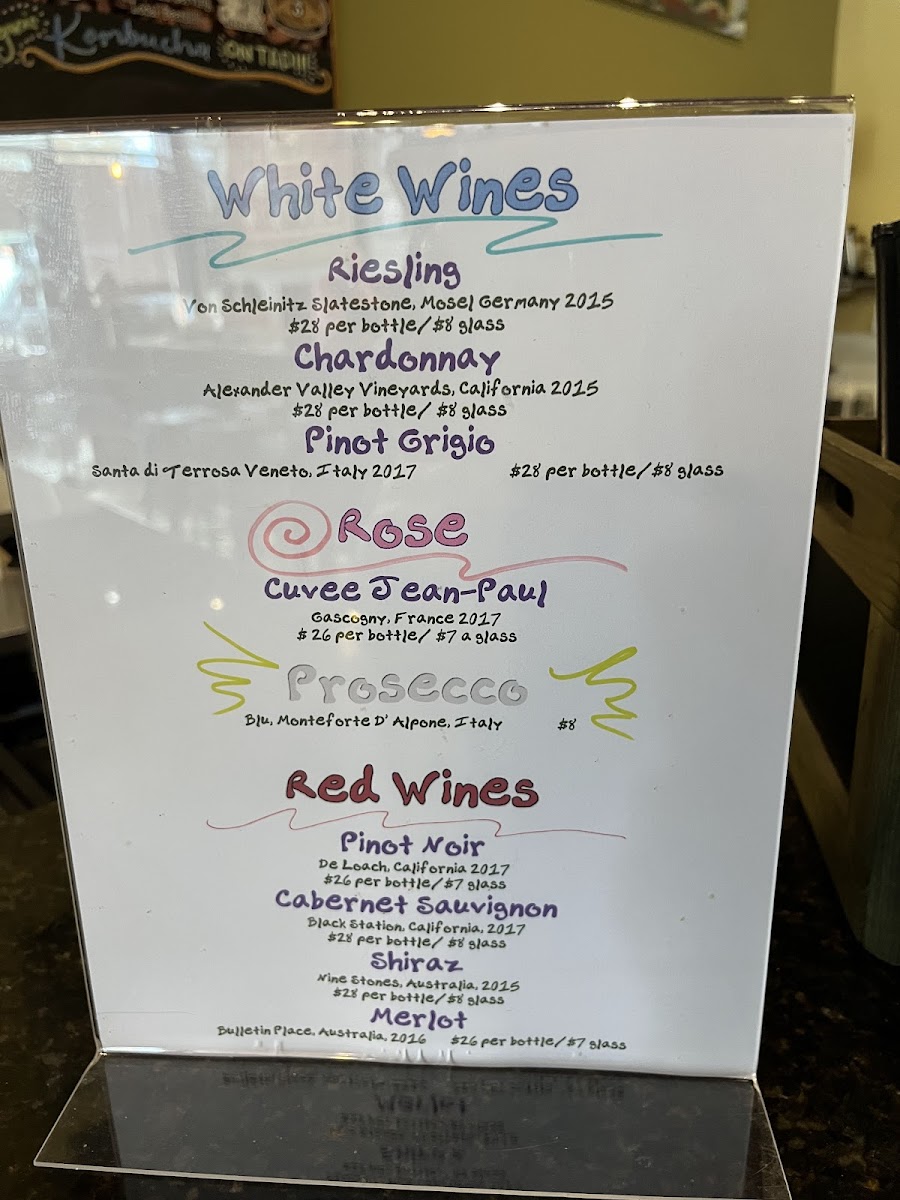 Kombucha ON TAP!!!
White Wines
Riesling
Von Schleinitz Slatestone, Mosel Germany 2015
$28 per bottle/$8 glass
Chardonnay
Alexander Valley Vineyards, California 2015
$28 per bottle/ $8 glass
Pinot Grigio
Santa di Terrosa Veneto, Italy 2017 $28 per bottle/$8 glass
Rose
Cuvee Jean-Paul
Gascogny, France 2017
$ 26 per bottle/ $7 a glass
Prosecco
Blu, Monteforte D' Alpone, Italy $8
Red Wines
Pinot Noir
De Loach, California 2017
$26 per bottle/$7 glass
Cabernet Sauvignon
Black Station, California, 2017
$28 per bottle/ $8 glass
Shiraz
Nine Stones, Australia, 2015
$28 per bottle/$8 glass
Merlot
Bulletin Place, Australia, 2016 $26 per bottle/$7 glass